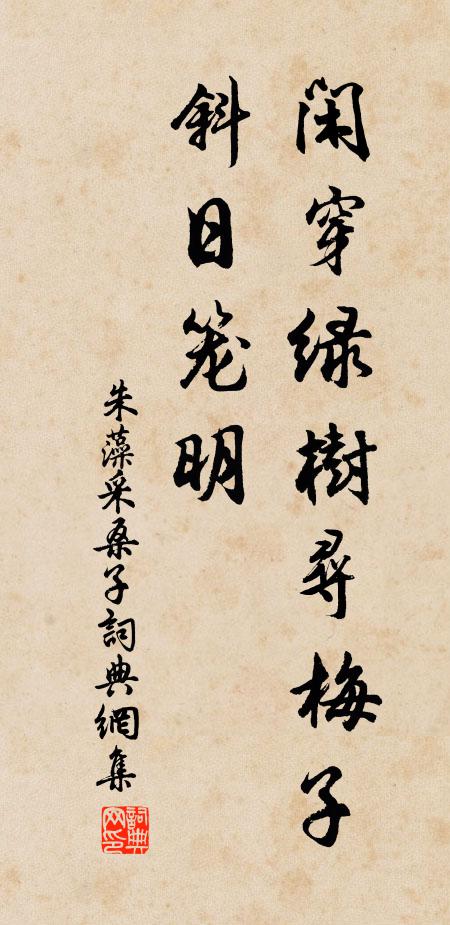 闲穿绿樹尋梅子
斜日笼明
朱藻采桑子詞典網集
詞典网印